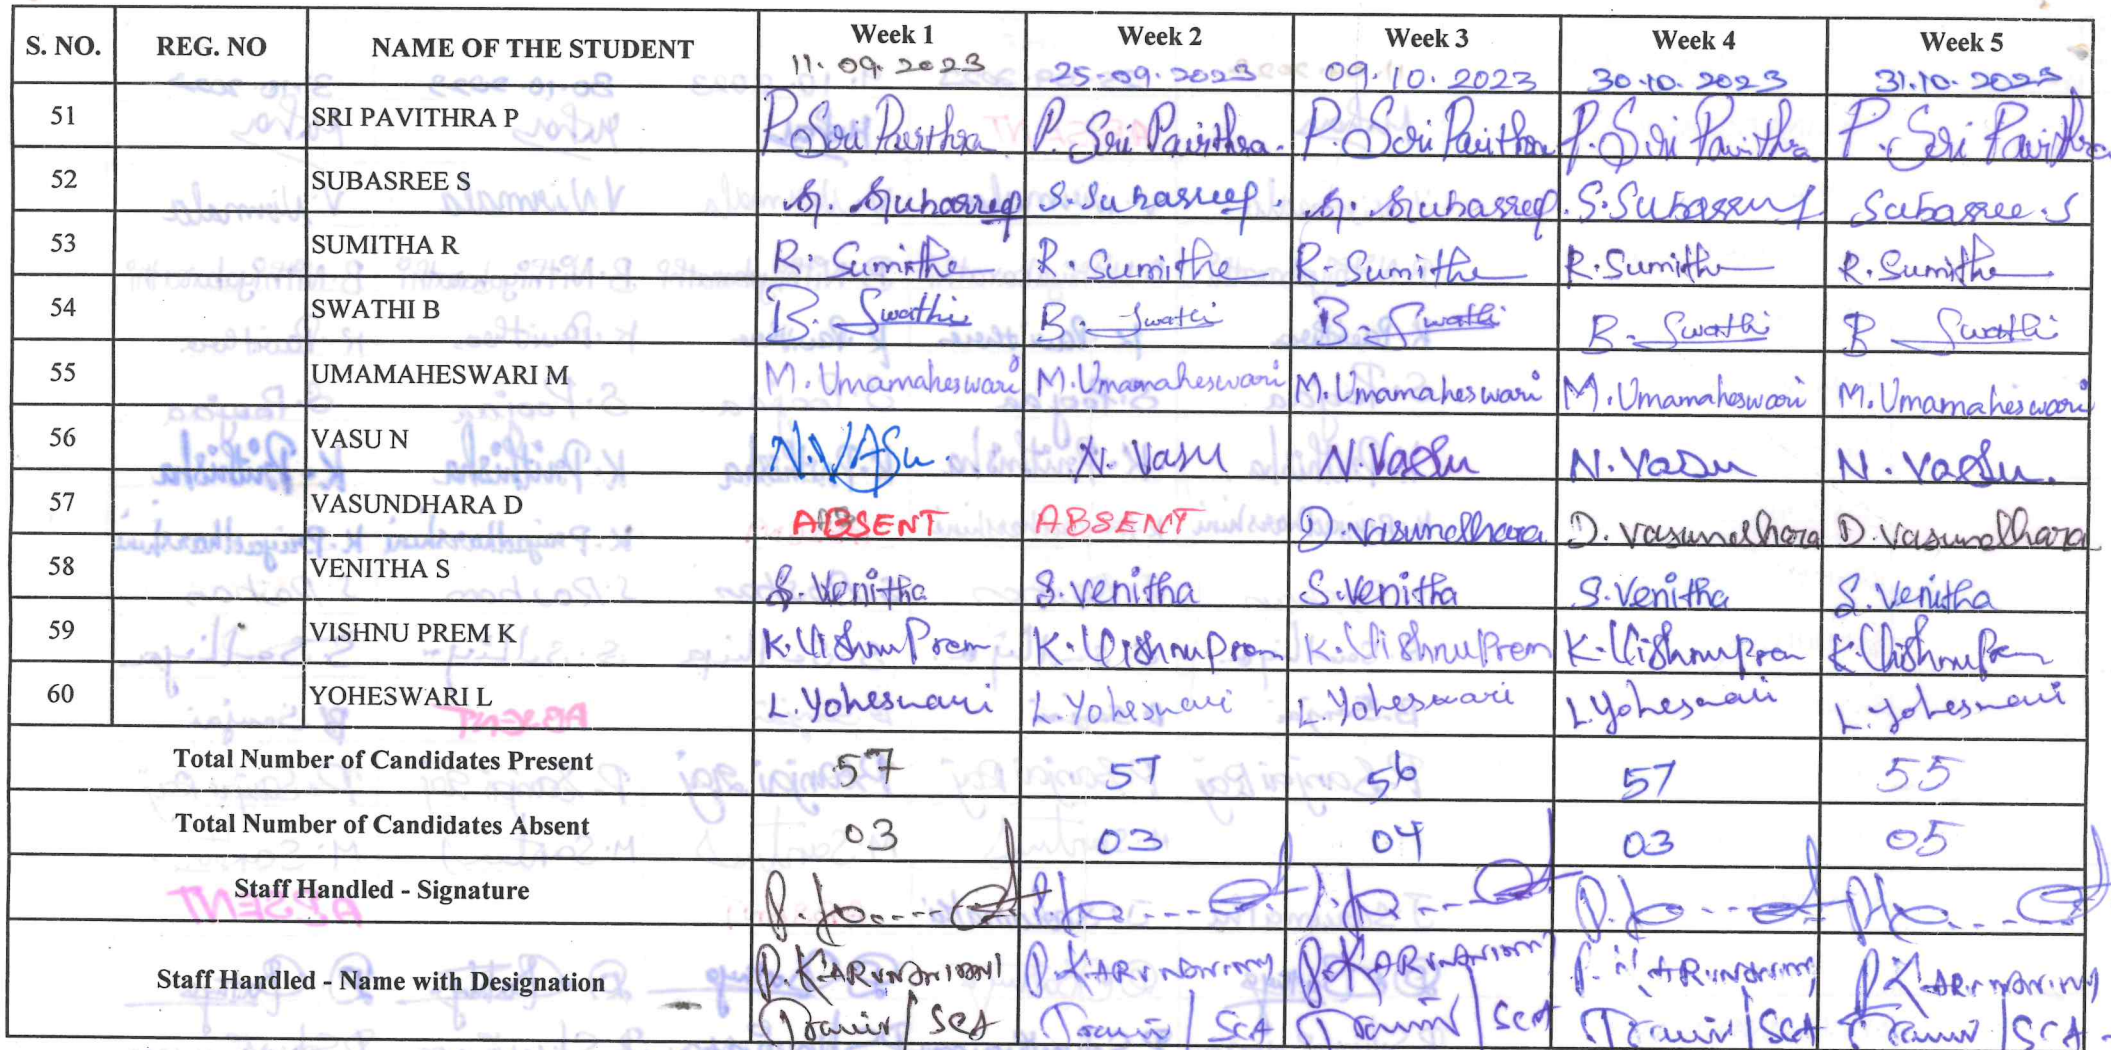 S. NO. REG. NO NAME OF THE STUDENT Week 1 Week 2 Week 3 Week 4 Week 5
11.09.2023 25-09.2023 09.10.2023 30.10.2023 31.10.2023
51 SRI PAVITHRA P P. Sri Pavithra P. Sri Pavithra. P. Sri Pavithra P. Sri Pavithra P. Sri Pavithra
52 SUBASREE S S. Subasree S. Subasree S. Subasree S. Subasree Subasree. S
53 SUMITHA R R. Sumitha R. Sumitha R. Sumitha R. Sumitha R. Sumitha
54 SWATHI B B. Swathi B. Swathi B. Swathi B. Swathi B Swathi
55 UMAMAHESWARI M M. Umamaheswari M. Umamaheswari M. Umamaheswari M. Umamaheswari M. Umamaheswari
56 VASU N N. VASu. N. Vasu N. Vasu N. Vasu N. Vasu.
57 VASUNDHARA D ABSENT ABSENT D. Vasundhara D. Vasundhara D. Vasundhara
58 VENITHA S S. Venitha S. Venitha S. Venitha S. Venitha S. Venitha
59 VISHNU PREM K K. Vishnu Prem K. Vishnu Prem K. Vishnu Prem K. Vishnu Prem K. Vishnu Prem
60 YOHESWARI L L. Yoheswari L. Yoheswari L. Yoheswari L. Yoheswari L. Yoheswari
Total Number of Candidates Present 57 57 56 57 55
Total Number of Candidates Absent 03 03 04 03 05
Staff Handled - Signature
Staff Handled - Name with Designation